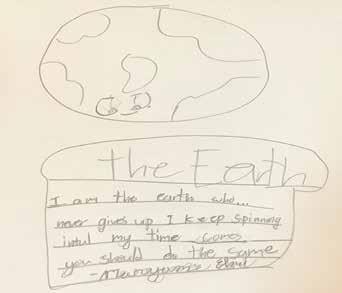 the Earth
I am the earth who...
never gives up I keep spinning
intul my time comes
you should do the same